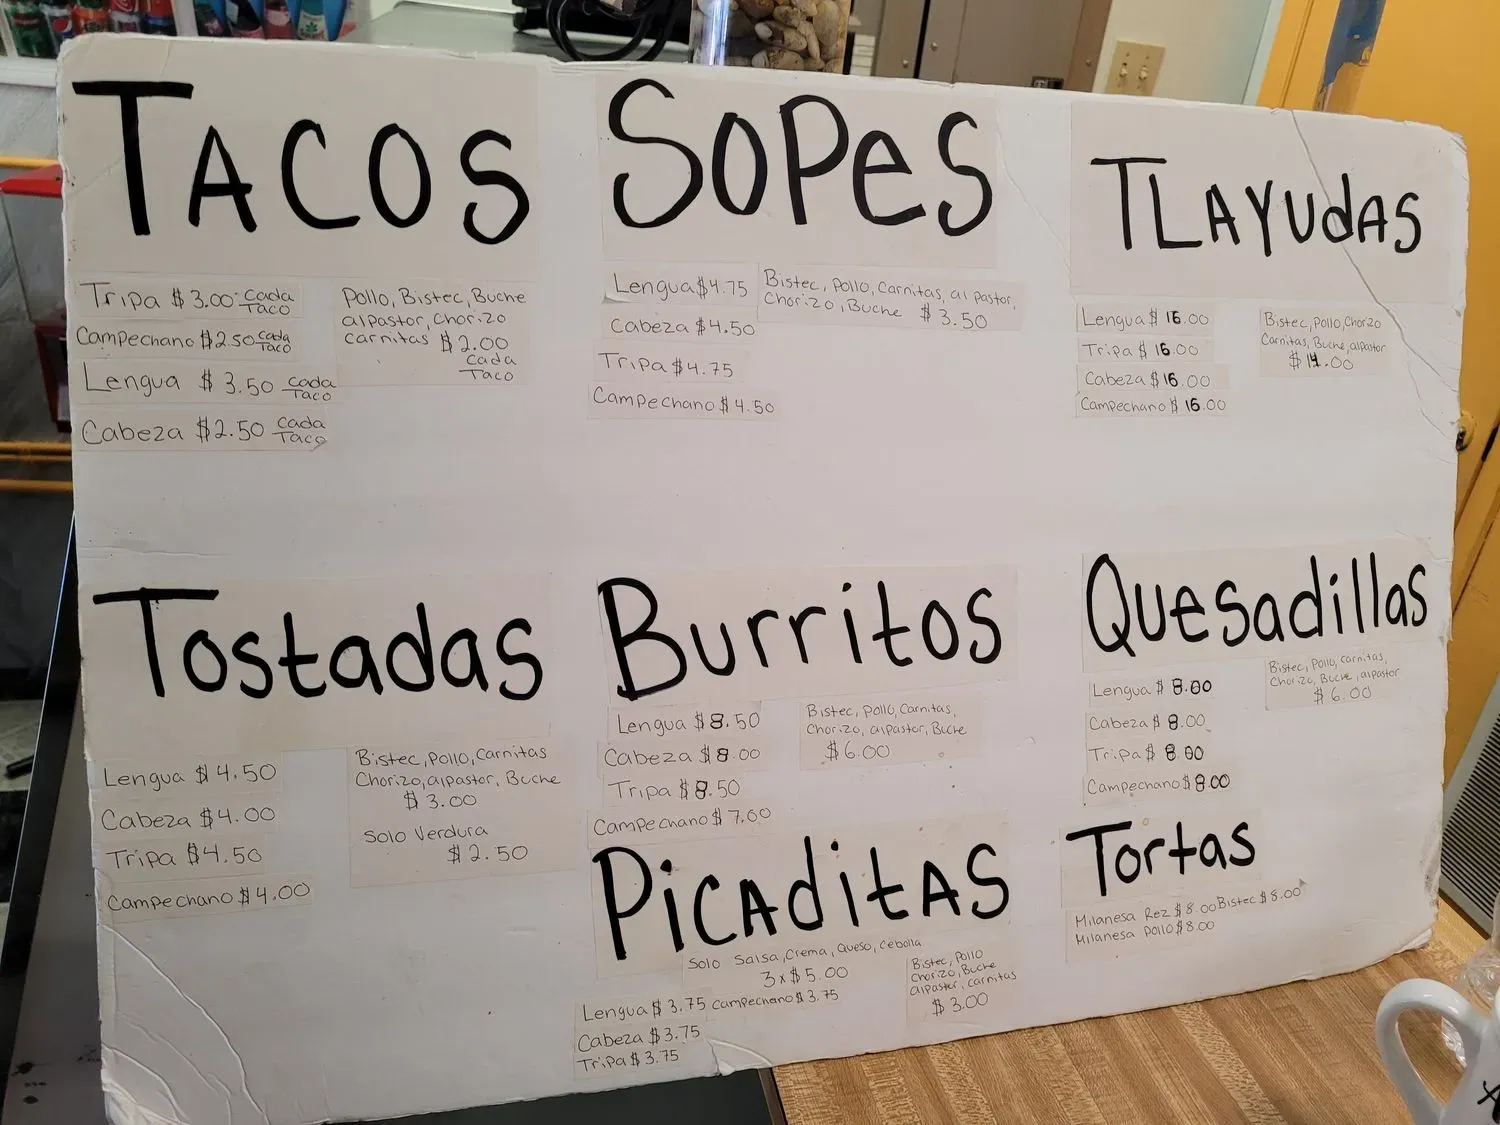 TACOS
Tripa $3.00 cada Taco
Campechano $2.50 cada Taco
Lengua $3.50 cada Taco
Cabeza $2.50 cada Taco
Pollo, Bistec, Buche
al pastor, Chorizo
carnitas $2.00
cada
Taco
SOPES
Lengua $4.75
Cabeza $4.50
Tripa $4.75
Campechano $4.50
Bistec, Pollo, Carnitas, al pastor,
Chorizo, Buche $3.50
TLAYUdAS
Lengua $16.00
Tripa $16.00
Cabeza $16.00
Campechano $16.00
Bistec, Pollo, Chorzo
Carnitas, Buche, al pastor
$14.00
Tostadas
Lengua $4.50
Cabeza $4.00
Tripa $4.50
Campechano $4.00
Bistec, Pollo, Carnitas
Chorizo, al pastor, Buche
$3.00
Solo Verdura
$2.50
Burritos
Lengua $8.50
Cabeza $8.00
Tripa $8.50
Campechano $7.00
Bistec, Pollo, Carnitas,
Chorizo, al pastor, Buche
$6.00
Quesadillas
Lengua $8.00
Cabeza $8.00
Tripa $8.00
Campechano $8.00
Bistec, Pollo, carnitas,
Chorizo, Buche, al pastor
$6.00
PICAditAS
Solo Salsa, Crema, Queso, cebolla
3x$5.00
Lengua $3.75 Campechano $3.75
Cabeza $3.75
Tripa $3.75
Bistec, Pollo
Chorizo, Buche
al pastor, carnitas
$3.00
Tortas
Milanesa Rez $8.00 Bistec $8.00
Milanesa Pollo $8.00